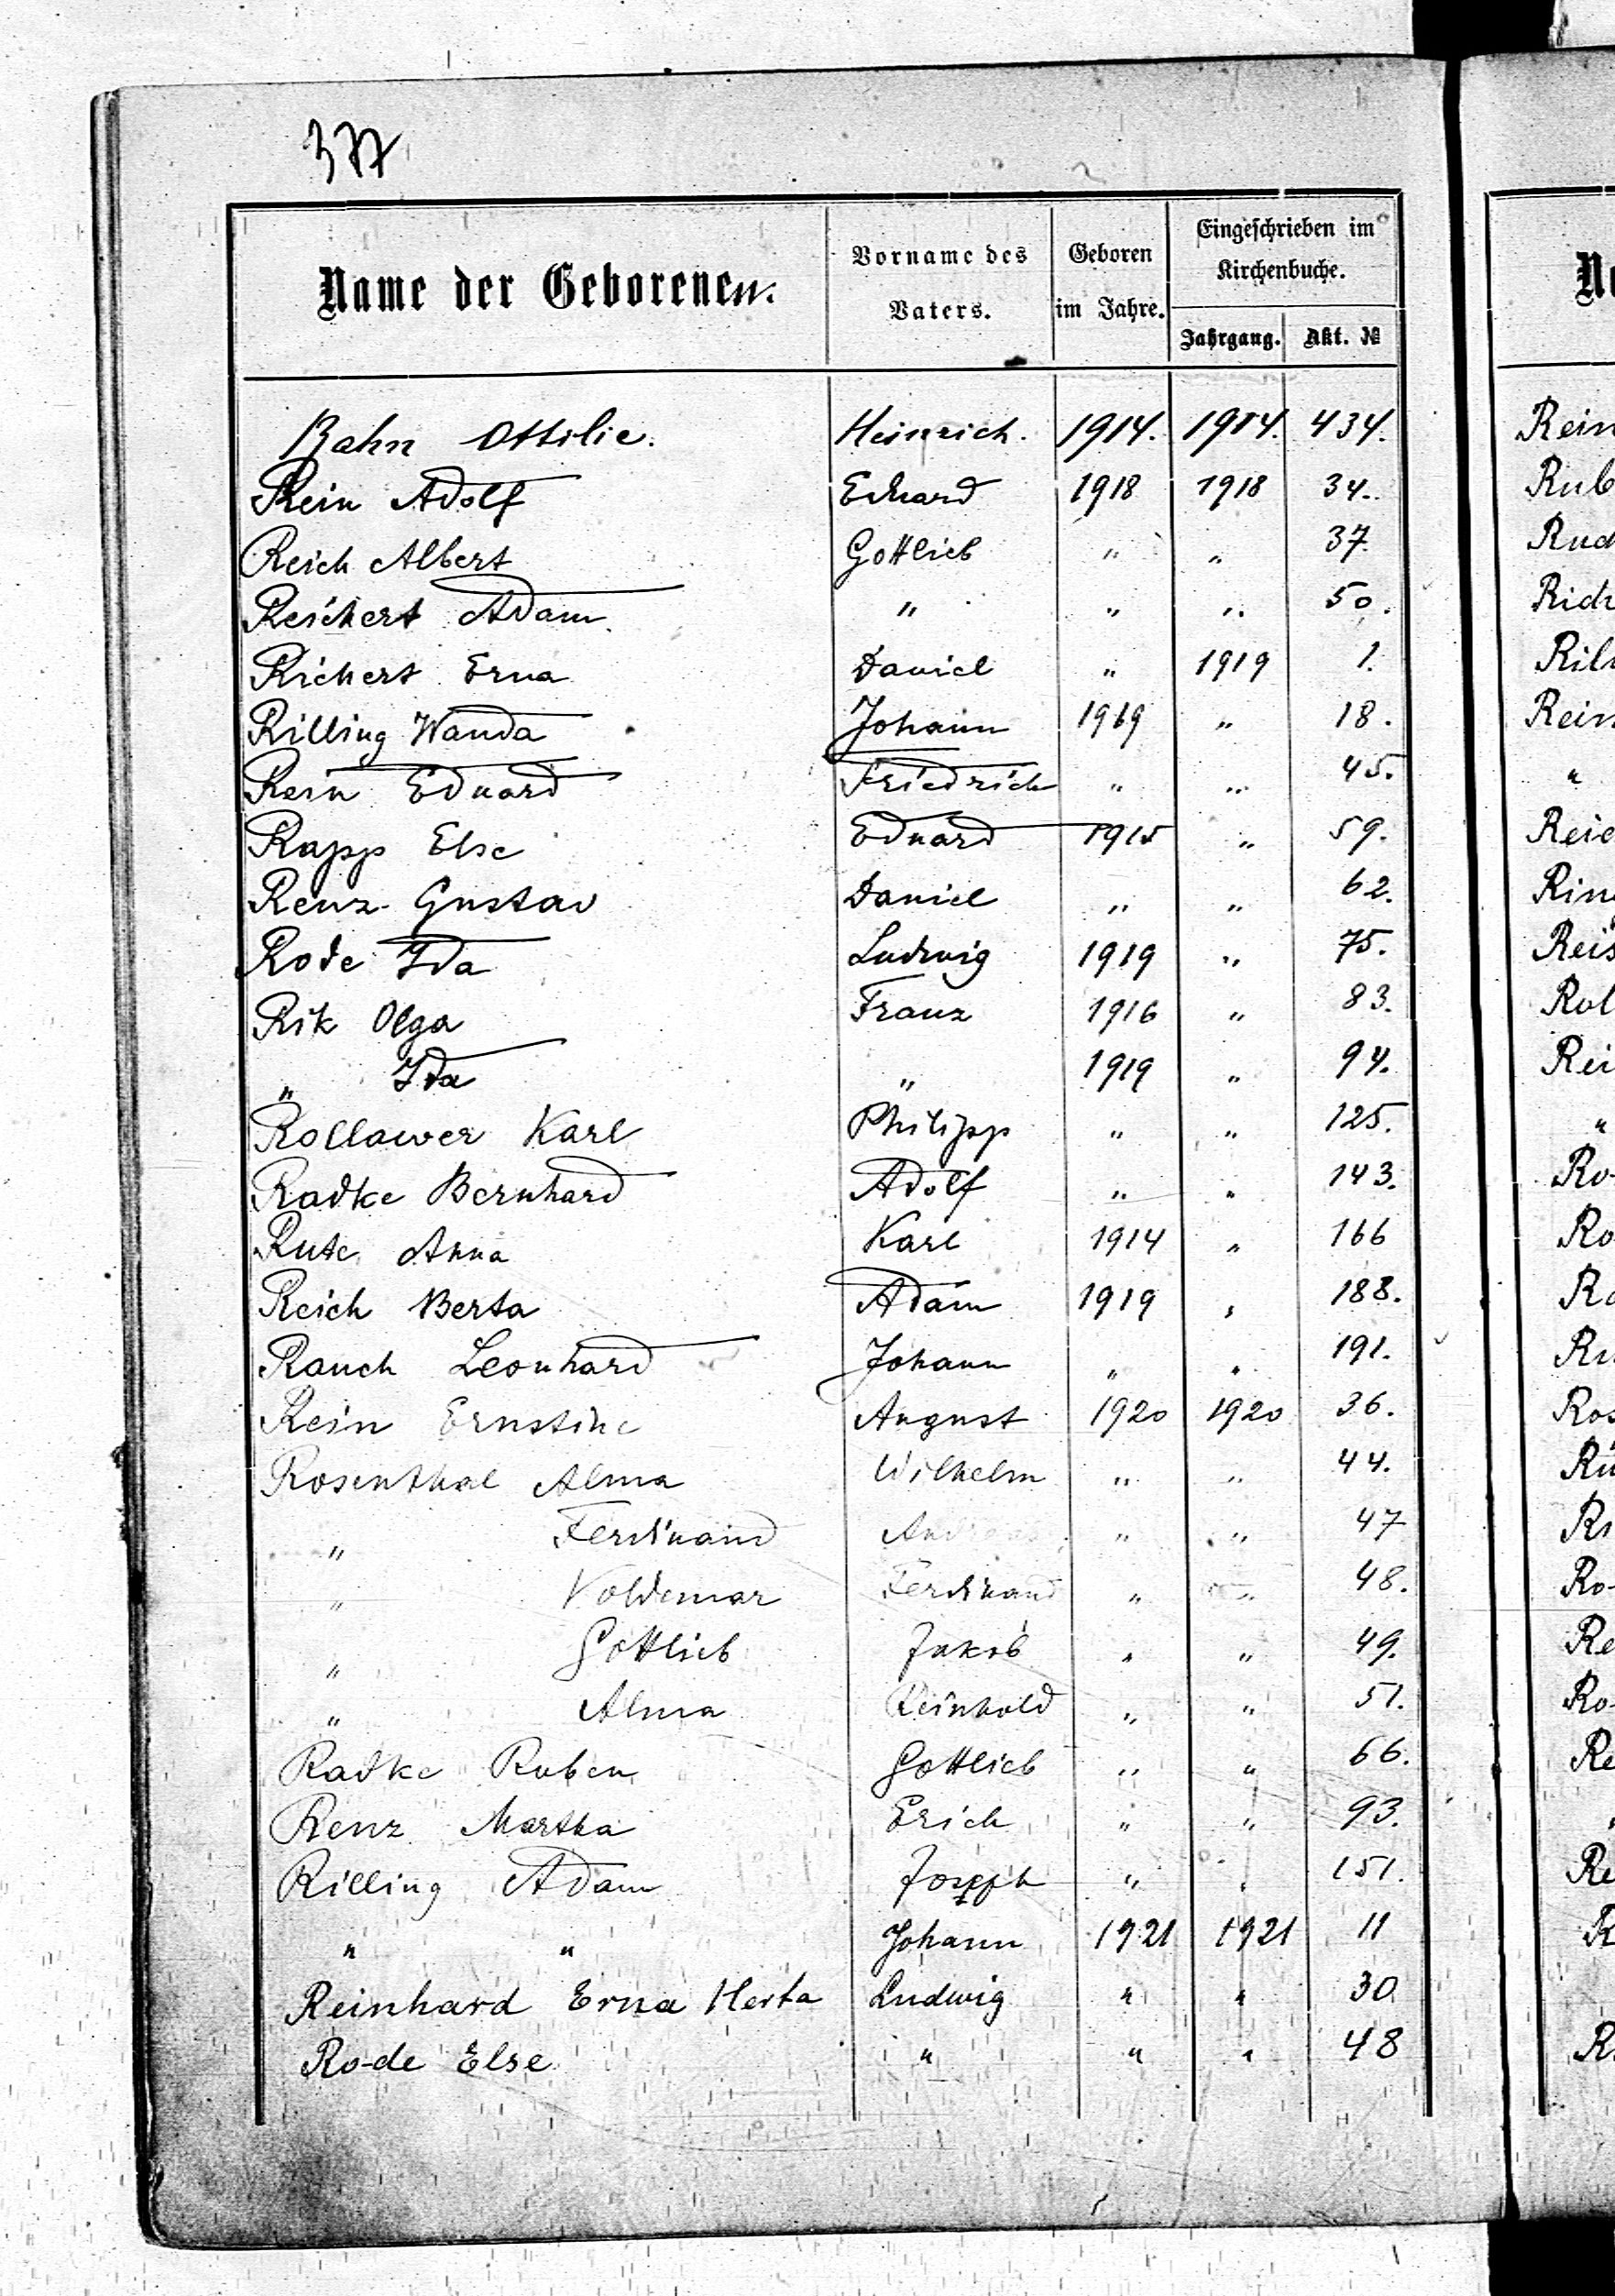 377
Name der Geborenen.
Vorname des Vaters.
Geboren im Jahre.
Eingeschrieben im Kirchenbuche.
Jahrgang. Akt. №
Rahn Ottilie. Heinrich. 1914. 1914. 434.
Rein Adolf Eduard 1918 1918 34.
Reich Albert Gottlieb " " 37.
Reichert Adam " " " 50.
Richert Erna Daniel " 1919 1.
Rilling Wanda Johann 1919 " 18.
Rein Eduard Friedrich " " 45.
Rapp Else Eduard 1915 " 59.
Renz Gustav Daniel " " 62.
Rode Ida Ludwig 1919 " 75.
Rik Olga Franz 1916 " 83.
" Ida " 1919 " 94.
Rollawer Karl Philipp " " 125.
Radke Bernhard Adolf " " 143.
Rute Anna Karl 1914 " 166
Reich Berta Adam 1919 " 188.
Rauch Leonhard Johann " " 191.
Rein Ernstine August 1920 1920 36.
Rosenthal Alma Wilhelm " " 44.
" Ferdinand " " 47
" Voldemar Ferdinand " " 48.
" Gottlieb Jakob " " 49.
" Alma Reinhold " " 51.
Radke Ruben Gottlieb " " 66.
Renz Martha Erich " " 93.
Rilling Adam Joseph " " 151.
" " Johann 1921 1921 11
Reinhard Erna Herta Ludwig " " 30
Ro-de Else " " " 48
Rein
Rub
Rud
Rich
Ril
Rein
"
Reic
Rin
Reis
Rol
Rei
"
Ro-
Ro
Ra
Ru
Ros
Rü
Ri
Ro-
Re
Ro-
Re
"
Re
R
R